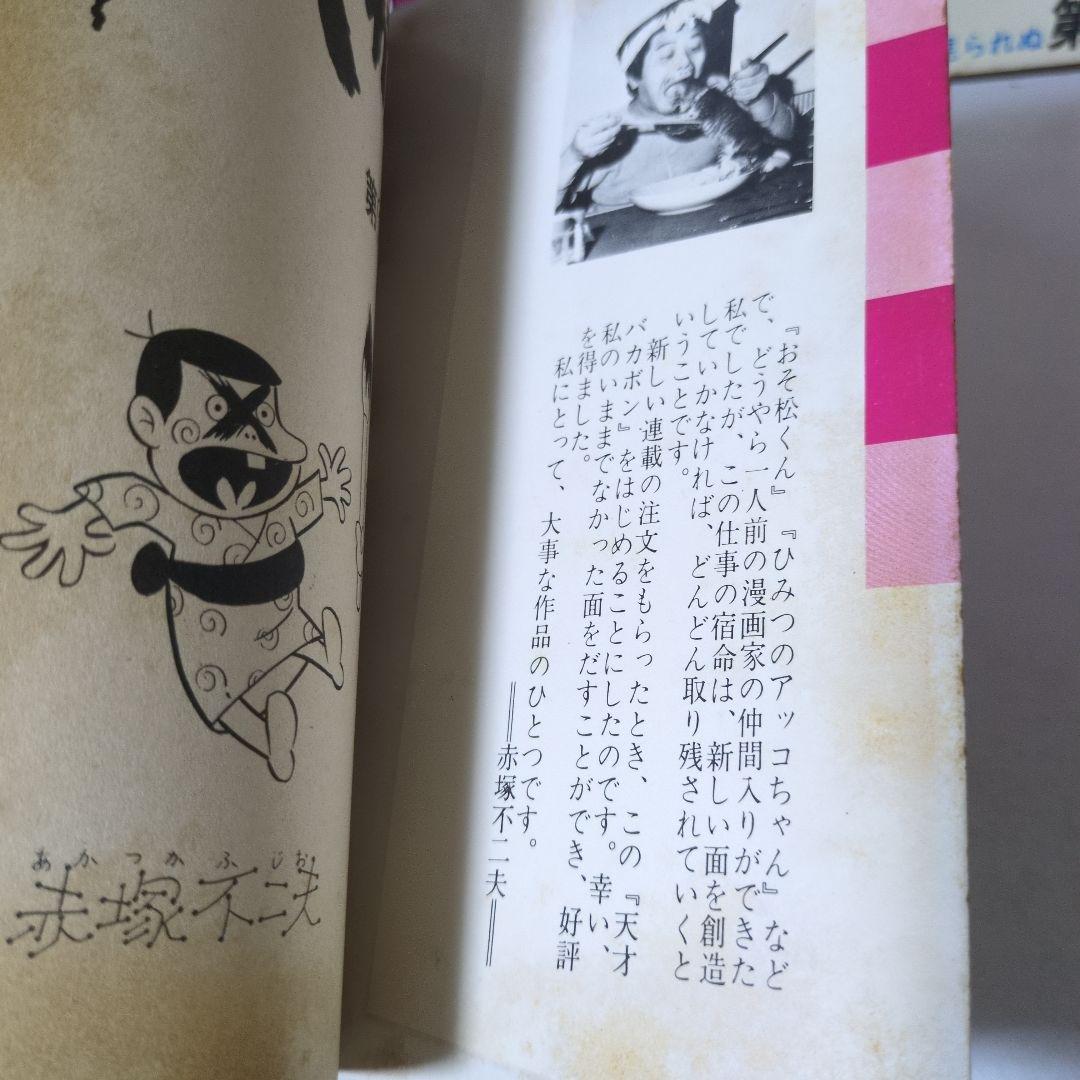 『おそ松くん』『ひみつのアッコちゃん』など
で、どうやら一人前の漫画家の仲間入りができた
私でしたが、この仕事の宿命は、新しい面を創造
していかなければ、どんどん取り残されていくと
いうことです。
新しい連載の注文をもらったとき、この『天才
バカボン』をはじめることにしたのです。幸い、
私のいままでなかった面をだすことができ、好評
を得ました。
私にとって、大事な作品のひとつです。
══赤塚不二夫══
第
あかつかふじお
赤塚不二夫
られぬ
第